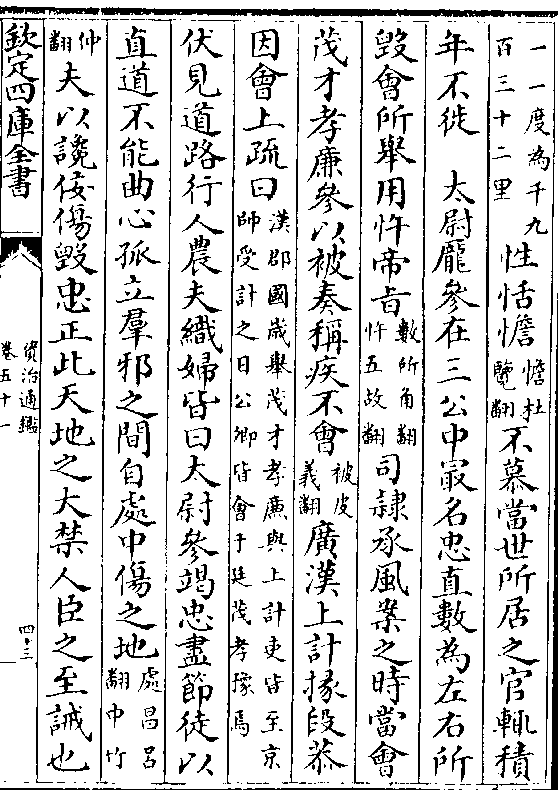 一一度為千九
百三十二里
性恬憺
憺杜
覽翻
不慕當世所居之官輒積
年不徙　太尉龐參在三公中㝡名忠直數為左右所
毀會所舉用忤帝㫖
數所角翻
忤五故翻
司隷承風案之時當會
茂才孝廉參以被奏稱疾不會
被皮
義翻
廣漢上計掾段恭
因會上疏曰
漢郡國歲舉茂才孝廉與上計吏皆至京
師受計之日公卿皆會于廷茂孝豫焉
伏見道路行人農夫織婦皆曰太尉參竭忠盡節徒以
直道不能曲心孤立羣邪之間自處中傷之地
處昌呂
翻中竹
仲
翻
夫以讒佞傷毀忠正此天地之大禁人臣之至誡也
欽定四庫全書
資治通鑑
卷五十一
四三